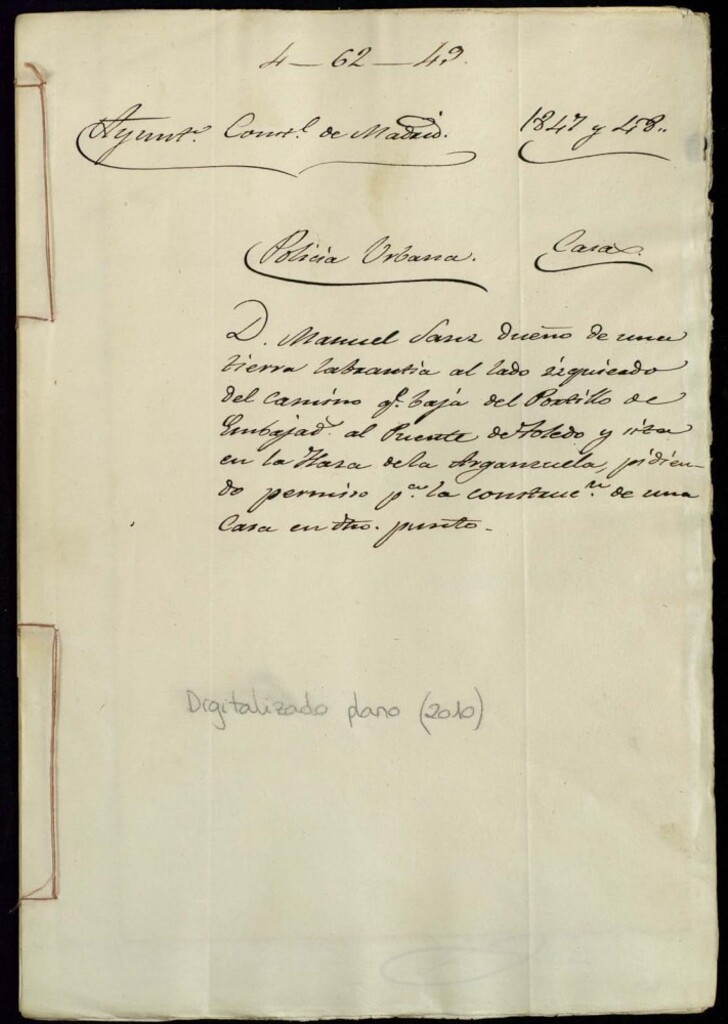 4 — 62 — 49.
Ayunt.º Const.l de Madrid. 1847 y 48..
Policia Urbana. Casa
D. Manuel Sanz dueño de una
tierra labrantia al lado izquierdo
del camino q.e baja del Portillo de
Embajad.s al Puente de Toledo y sita
en la Haza de la Arganzuela, pidien-
do permiso p.a la construc.n de una
Casa en dho. punto.
Digitalizado plano (2010)